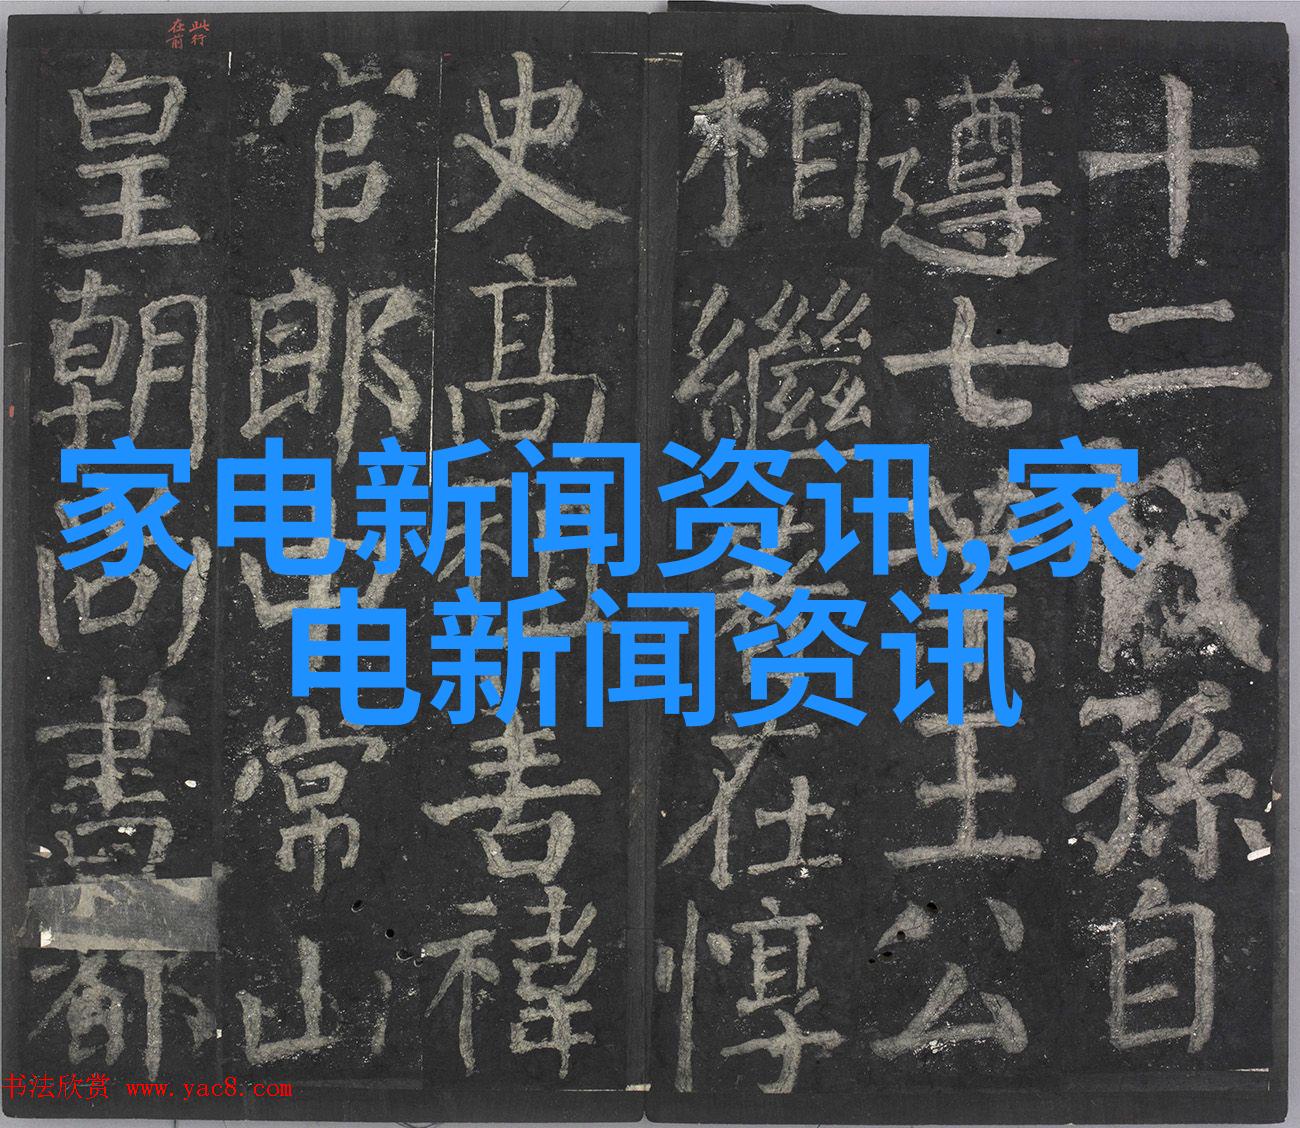 此行
在前
十二孫自
遵七王公
相繼在惇
史高祖禕
官郎中常山
皇朝尚書都
家电新闻资讯,家
电新闻资讯
书法欣赏 www.yac8.com